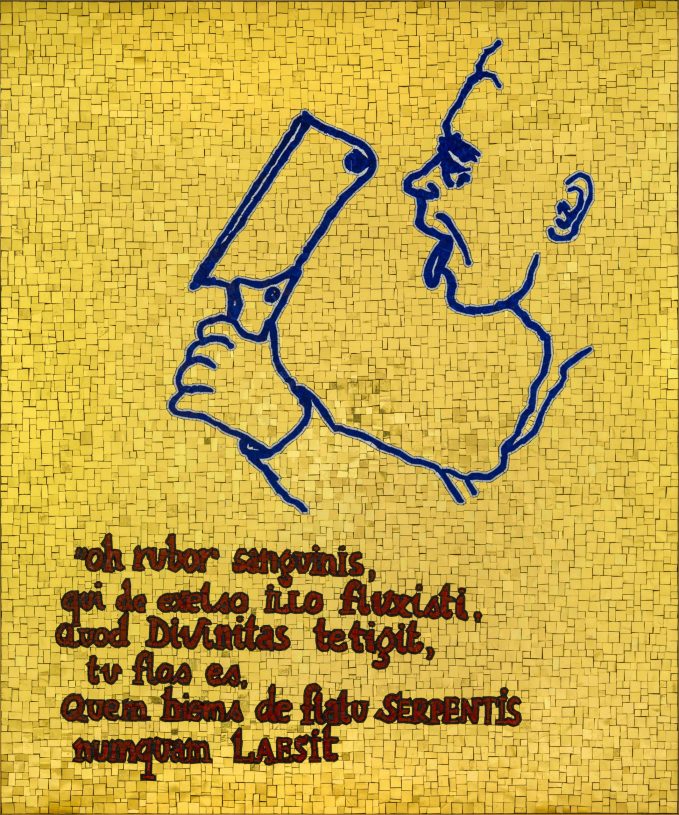 "oh rubor sanguinis,
qui de excelso illo fluxisti,
Quod Divinitas tetigit,
tu flos es,
Quem hiems de flatu SERPENTIS
numquam LAESit